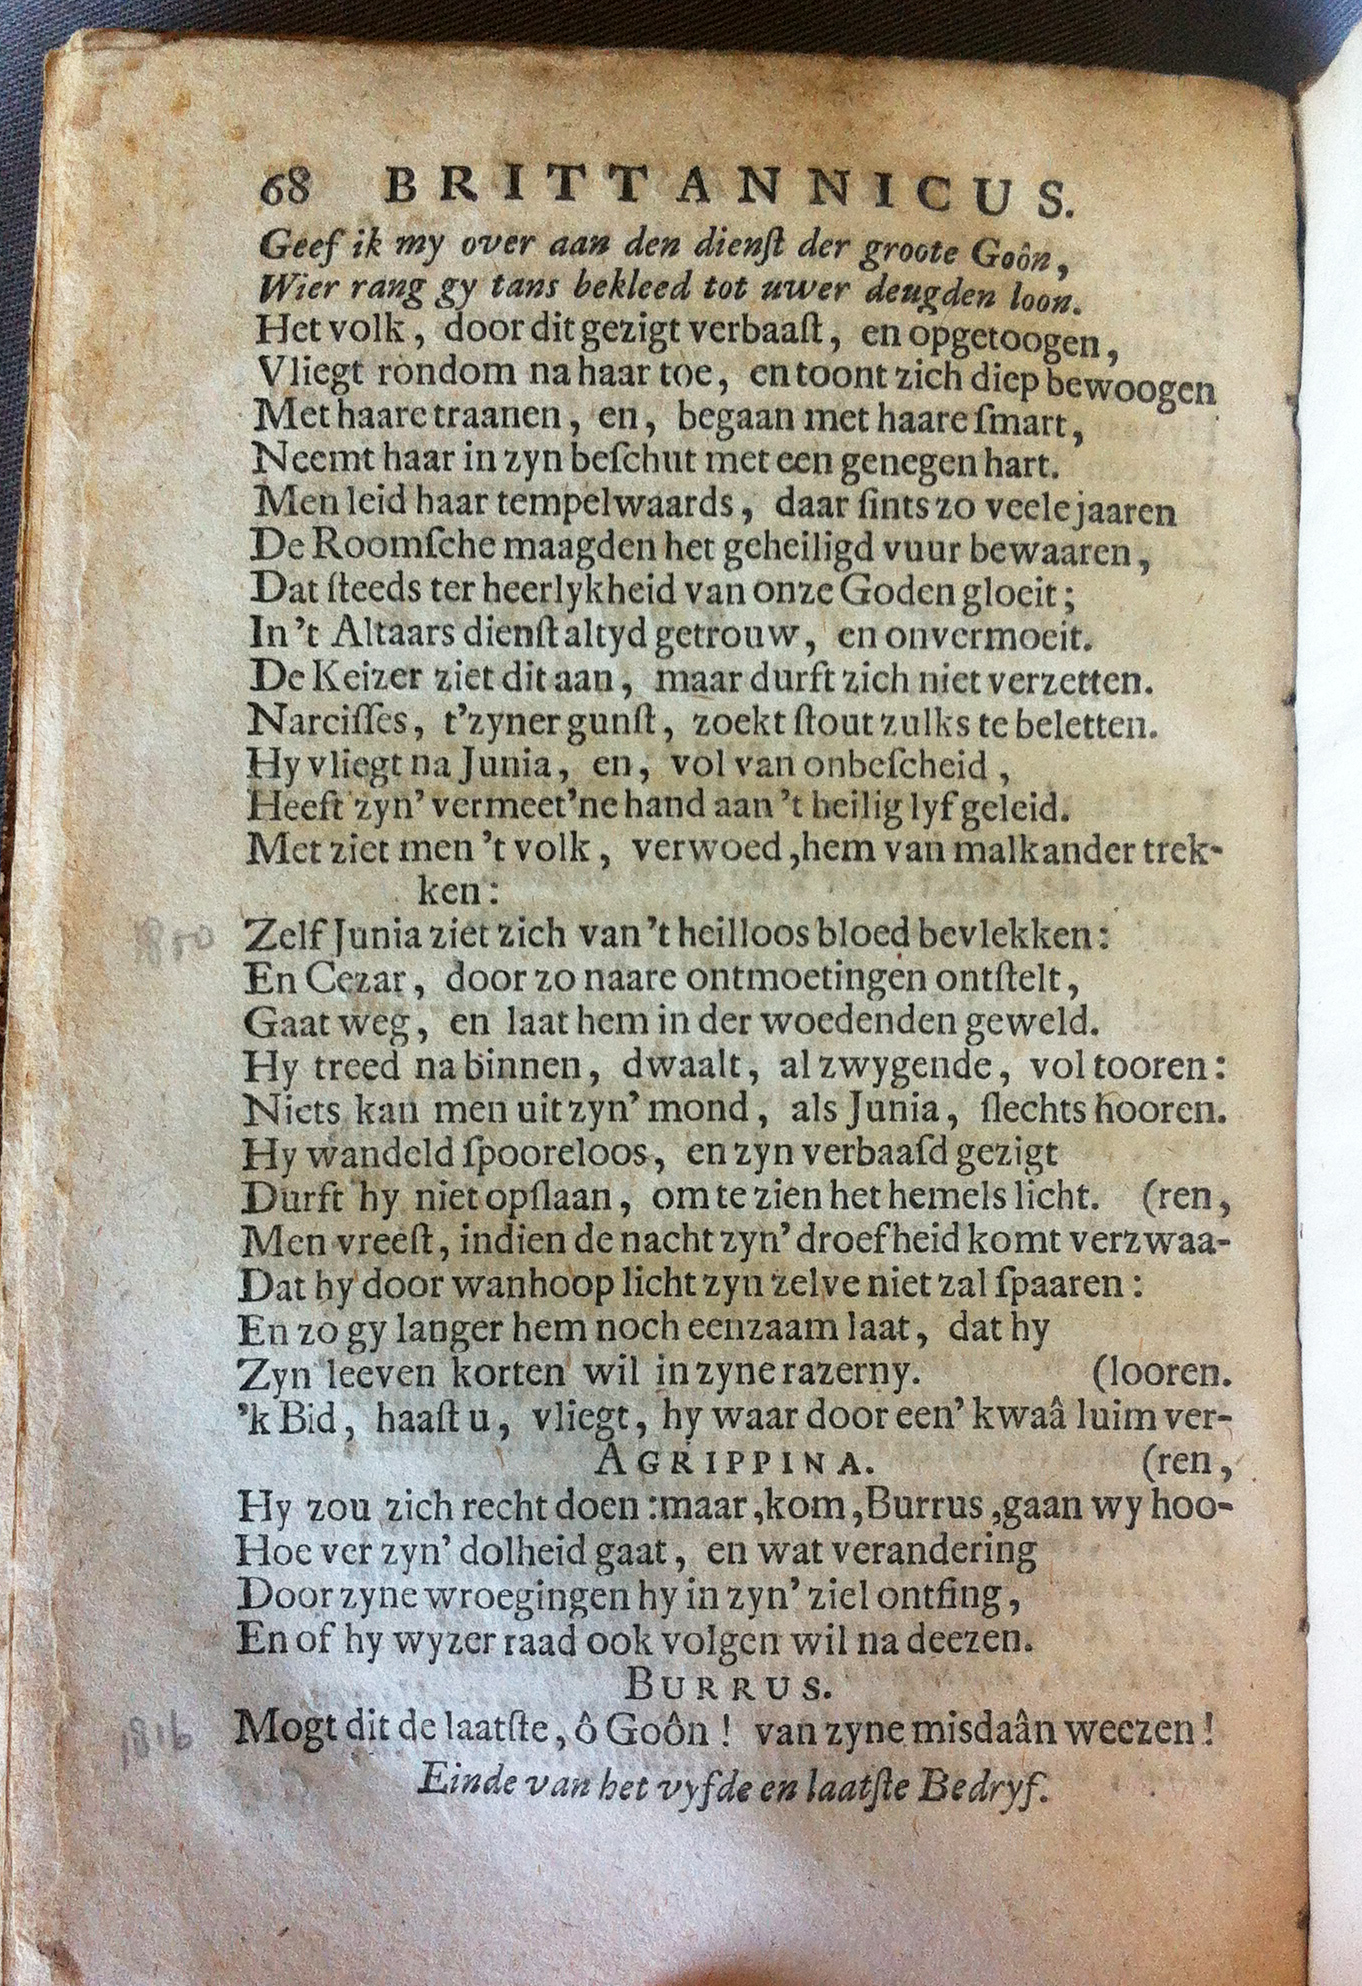 68 BRITTANNICUS.
Geef ik my over aan den dienſt der groote Goôn,
Wier rang gy tans bekleed tot uwer deugden loon.
Het volk, door dit gezigt verbaaſt, en opgetoogen,
Vliegt rondom na haar toe, en toont zich diep bewoogen
Met haare traanen, en, begaan met haare ſmart,
Neemt haar in zyn beſchut met een genegen hart.
Men leid haar tempelwaards, daar ſints zo veele jaaren
De Roomſche maagden het geheiligd vuur bewaaren,
Dat ſteeds ter heerlykheid van onze Goden gloeit;
In 't Altaars dienſt altyd getrouw, en onvermoeit.
De Keizer ziet dit aan, maar durft zich niet verzetten.
Narciſſes, t'zyner gunſt, zoekt ſtout zulks te beletten.
Hy vliegt na Junia, en, vol van onbeſcheid,
Heeft zyn' vermeet'ne hand aan 't heilig lyf geleid.
Met ziet men 't volk, verwoed, hem van malkander trek-
ken:
1850 Zelf Junia ziet zich van 't heilloos bloed bevlekken:
En Cezar, door zo naare ontmoetingen ontſtelt,
Gaat weg, en laat hem in der woedenden geweld.
Hy treed na binnen, dwaalt, al zwygende, vol tooren:
Niets kan men uit zyn' mond, als Junia, ſlechts hooren.
Hy wandeld ſpooreloos, en zyn verbaaſd gezigt
Durft hy niet opſlaan, om te zien het hemels licht. (ren,
Men vreeſt, indien de nacht zyn' droefheid komt verzwaa-
Dat hy door wanhoop licht zyn zelve niet zal ſpaaren:
En zo gy langer hem noch eenzaam laat, dat hy
Zyn leeven korten wil in zyne razerny. (looren.
'k Bid, haaſt u, vliegt, hy waar door een' kwaâ luim ver-
AGRIPPINA. (ren,
Hy zou zich recht doen: maar, kom, Burrus, gaan wy hoo-
Hoe ver zyn' dolheid gaat, en wat verandering
Door zyne wroegingen hy in zyn' ziel ontfing,
En of hy wyzer raad ook volgen wil na deezen.
BURRUS.
1816 Mogt dit de laatſte, ô Goôn! van zyne misdaân weezen!
Einde van het vyfde en laatſte Bedryf.